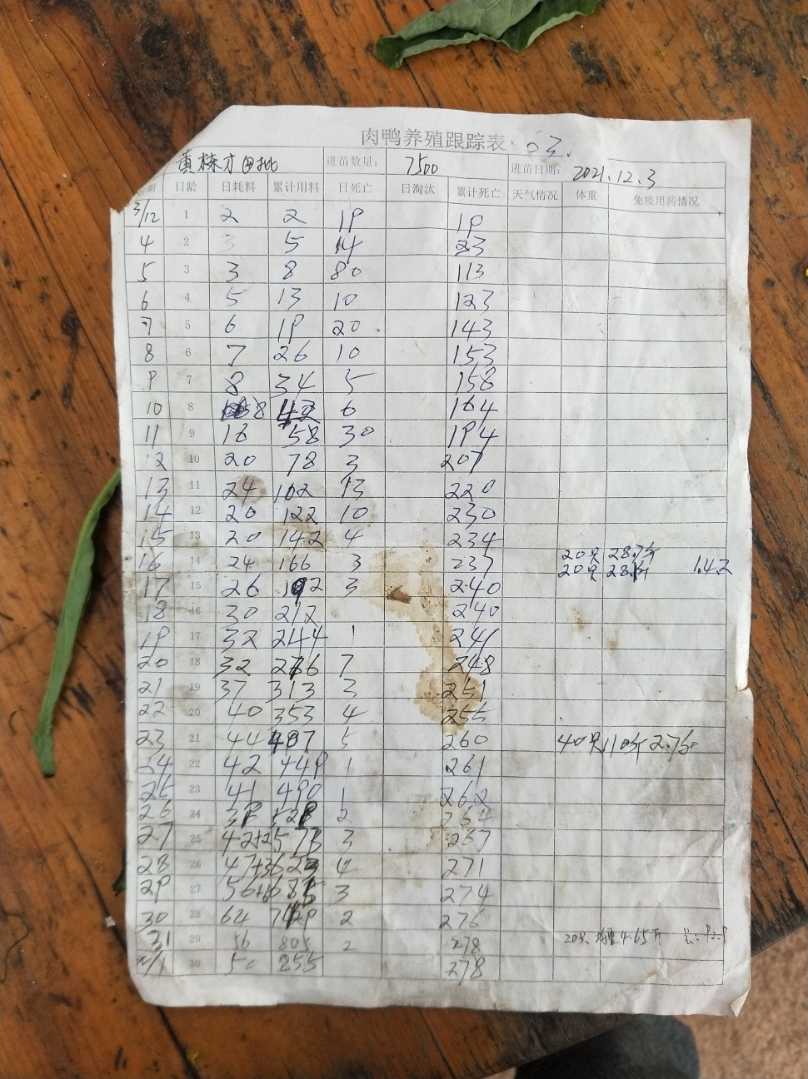 肉鸭养殖跟踪表
黄栋才四批 进苗数量: 7500 进苗日期: 2021.12.3
日龄 日耗料 累计用料 日死亡 日淘汰 累计死亡 天气情况 体重 免疫用药情况
3/12 1 2 2 19 19
4 2 3 5 14 23
5 3 3 8 80 113
6 4 5 13 10 123
7 5 6 19 20 143
8 6 7 26 10 153
9 7 8 34 5 158
10 8 8 42 6 164
11 9 16 58 30 194
12 10 20 78 3 207
13 11 24 102 13 220
14 12 20 122 10 230
15 13 20 142 4 234
16 14 24 166 3 237 20只 28.7斤 20只 1.42
17 15 26 192 3 240
18 16 30 212 240
19 17 32 244 1 241
20 18 32 276 7 248
21 19 37 313 3 251
22 20 40 353 4 255
23 21 44 407 5 260 40只 110斤 2.7斤
24 22 42 449 1 261
25 23 41 490 1 262
26 24 39 2 264
27 25 42+2 573 3 267
28 26 47+3 623 4 271
29 27 56 685 3 274
30 28 64 749 2 276
31 29 56 805 2 278 20只 4.65斤
1 30 50 855 278